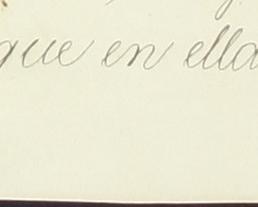 que en ella